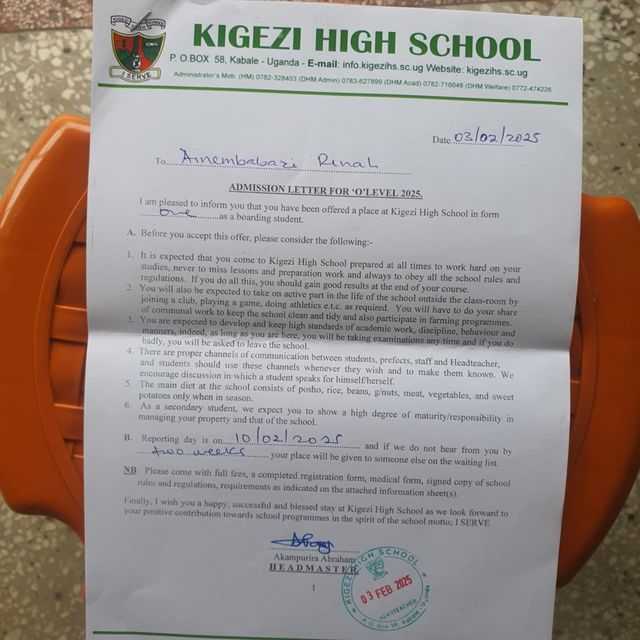 KIGEZI HIGH SCHOOL
I SERVE
KIGEZI HIGH SCHOOL
P. O.BOX 58, Kabale - Uganda - E-mail: info.kigezihs.sc.ug Website: kigezihs.sc.ug
Administrator's Mob: (HM) 0782-328403 (DHM Admin) 0783-627899 (DHM Acad) 0782-716048 (DHM Welfare) 0772-474226
Date 03/02/2025
To Ainembabazi Rinah
ADMISSION LETTER FOR 'O'LEVEL 2025.
I am pleased to inform you that you have been offered a place at Kigezi High School in form
one as a boarding student.
A. Before you accept this offer, please consider the following:-
1. It is expected that you come to Kigezi High School prepared at all times to work hard on your
studies, never to miss lessons and preparation work and always to obey all the school rules and
regulations. If you do all this, you should gain good results at the end of your course.
2. You will also be expected to take on active part in the life of the school outside the class-room by
joining a club, playing a game, doing athletics e.t.c. as required. You will have to do your share
of communal work to keep the school clean and tidy and also participate in farming programmes.
3. You are expected to develop and keep high standards of academic work, discipline, behaviour and
manners, indeed, as long as you are here, you will be taking examinations any time and if you do
badly, you will be asked to leave the school.
4. There are proper channels of communication between students, prefects, staff and Headteacher,
and students should use these channels whenever they wish and to make them known. We
encourage discussion in which a student speaks for himself/herself.
5. The main diet at the school consists of posho, rice, beans, g/nuts, meat, vegetables, and sweet
potatoes only when in season.
6. As a secondary student, we expect you to show a high degree of maturity/responsibility in
managing your property and that of the school.
B. Reporting day is on 10/02/2025 and if we do not hear from you by
two weeks, your place will be given to someone else on the waiting list.
NB: Please come with full fees, a completed registration form, medical form, signed copy of school
rules and regulations, requirements as indicated on the attached information sheet(s).
Finally, I wish you a happy, successful and blessed stay at Kigezi High School as we look forward to
your positive contribution towards school programmes in the spirit of the school motto; I SERVE
Akampurira Abraham
HEADMASTER
1
KIGEZI HIGH SCHOOL
03 FEB 2025
HEADTEACHER
P. O. Box 58, Kabale, Uganda